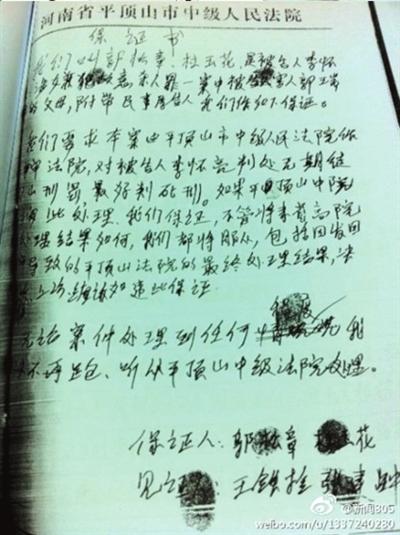 河南省平顶山市中级人民法院
保证书
我们叫郭松章、杜玉花,是被告人李怀
亮故意杀人罪一案中被害人郭
的父母,附带民事原告人,我们作如下保证。
我们要求本案由平顶山市中级人民法院作
法院,对被告人李怀亮判处无期徒
刑,最好判死刑。如果平顶山中院
此处理,我们保证,不管将来高院
处理结果如何,我们都将服从,包括因发回
导致的平顶山法院的最终处理结果,决
不上访,特此保证
无论案件处理到任何 我
决不再上 、听从平顶山中级法院处理。
保证人:郭松章 杜玉花
见证人:王铁拴 张建
@新闻305
weibo.com/u/1337240280